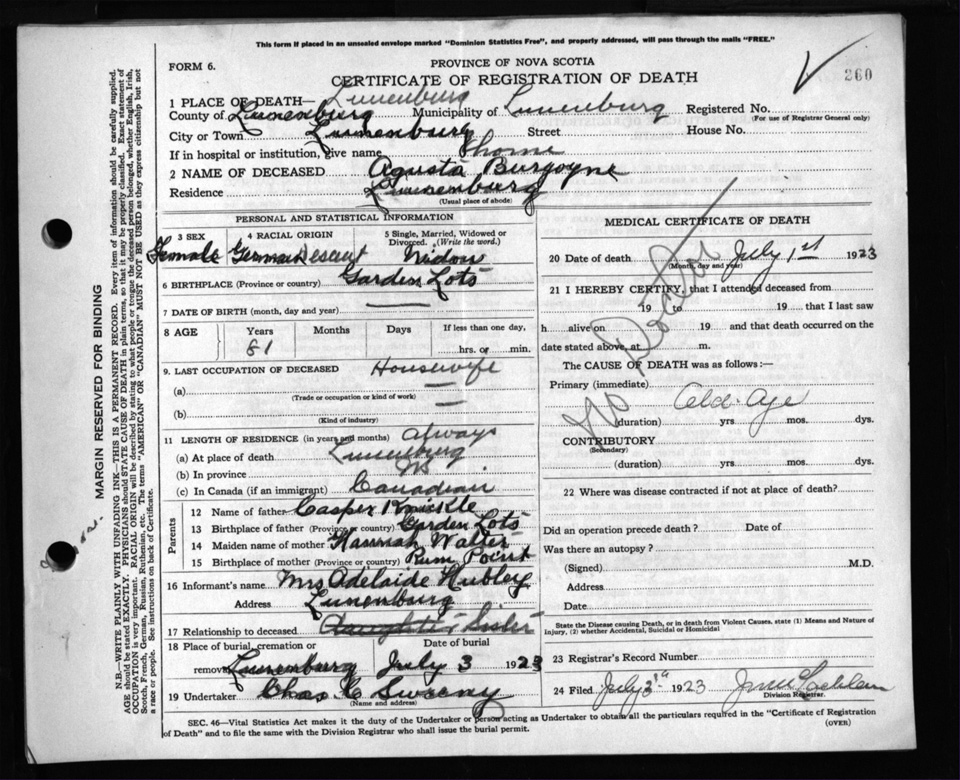 This form if placed in an unsealed envelope marked "Dominion Statistics Free", and properly addressed, will pass through the mails "FREE."
FORM 6.
PROVINCE OF NOVA SCOTIA
CERTIFICATE OF REGISTRATION OF DEATH
260
1 PLACE OF DEATH— Lunenburg
County of Lunenburg Municipality of Lunenburg Registered No.
(For use of Registrar General only)
City or Town Lunenburg Street House No.
If in hospital or institution, give name home
2 NAME OF DECEASED Agusta Burgoyne
Residence Lunenburg
(Usual place of abode)
PERSONAL AND STATISTICAL INFORMATION
3 SEX 4 RACIAL ORIGIN 5 Single, Married, Widowed or Divorced. (Write the word.)
Female German Descent Widow
6 BIRTHPLACE (Province or country) Garden Lots
7 DATE OF BIRTH (month, day and year)
8 AGE Years Months Days If less than one day,
81 hrs. or min.
9. LAST OCCUPATION OF DECEASED Housewife
(a)
(Trade or occupation or kind of work)
(b)
(Kind of industry)
11 LENGTH OF RESIDENCE (in years and months) Always
(a) At place of death Lunenburg
(b) In province NS
(c) In Canada (if an immigrant) Canadian
Parents
12 Name of father Casper Knickle
13 Birthplace of father (Province or country) Garden Lots
14 Maiden name of mother Hannah Walter
15 Birthplace of mother (Province or country) Rum Point
16 Informant's name Mrs Adelaide Hubley
Address Lunenburg
17 Relationship to deceased daughter Sister
18 Place of burial, cremation or removal Date of burial
Lunenburg July 3 1923
19 Undertaker Chas C Sweeny
(Name and address)
MEDICAL CERTIFICATE OF DEATH
20 Date of death July 1st 1923
(Month, day and year)
21 I HEREBY CERTIFY, that I attended deceased from
19 to 19 that I last saw
h alive on 19 and that death occurred on the
date stated above, at m.
The CAUSE OF DEATH was as follows:—
No Doctor
Primary (immediate)
Old Age
(duration) yrs. mos. dys.
CONTRIBUTORY
(Secondary)
(duration) yrs. mos. dys.
22 Where was disease contracted if not at place of death?
Did an operation precede death? Date of
Was there an autopsy?
(Signed) M.D.
Address
Date
State the Disease causing Death, or in death from Violent Causes, state (1) Means and Nature of
Injury, (2) whether Accidental, Suicidal or Homicidal
23 Registrar's Record Number
24 Filed July 3rd 1923
Division Registrar.
SEC. 46—Vital Statistics Act makes it the duty of the Undertaker or person acting as Undertaker to obtain all the particulars required in the "Certificate of Registration
of Death" and to file the same with the Division Registrar who shall issue the burial permit.
(OVER)
MARGIN RESERVED FOR BINDING
N.B.—WRITE PLAINLY WITH UNFADING INK—THIS IS A PERMANENT RECORD. Every item of information should be carefully supplied.
AGE should be stated EXACTLY. PHYSICIANS should STATE CAUSE OF DEATH in plain terms, so that it may be properly classified. Exact statement of
OCCUPATION is very important. RACIAL ORIGIN will be described by stating to what people or tongue the deceased person belonged, whether English, Irish,
Scotch, French, German, Russian, Ruthenian, etc. The terms "AMERICAN" or "CANADIAN" MUST NOT BE USED as they express citizenship but not
a race or people. See instructions on back of Certificate.